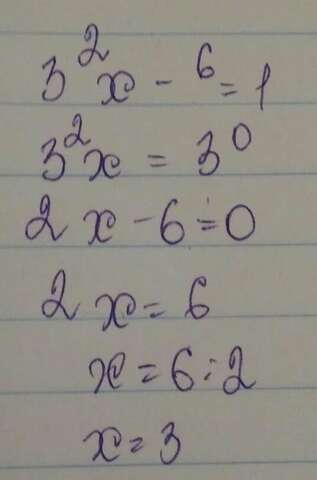 3²x - ⁶ = 1
3²x = 3⁰
2x - 6 = 0
2x = 6
x = 6:2
x = 3